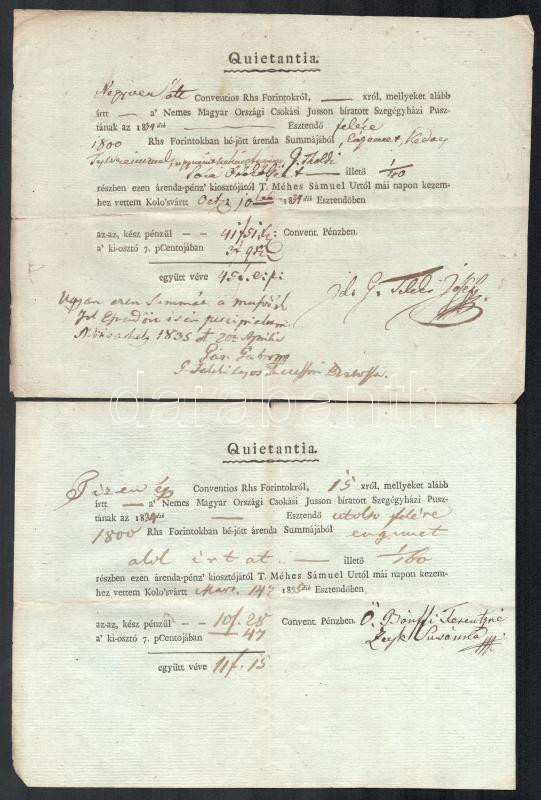 Quietantia.
Negyven ött Conventios Rhs Forintokról, — xról, mellyeket alább
írtt — a' Nemes Magyar Országi Csokási Jusson bíratott Szegégyházi Pusz-
tának az 1834dik — Esztendő felére
1800 Rhs Forintokban bé-jött árenda Summájából,
G. Tholdi
illető 1/100
részben ezen árenda-pénz' kiosztójától T. Méhes Sámuel Urtól mái napon kezem-
hez vettem Kolo'svártt Oct. 10 1834dik Esztendőben
az-az, kész pénzül – – 41 f 51 Convent. Pénzben.
a' ki-osztó 7. pCentojában
együtt véve 45
Id. G. Teleki Jósef
Ugyan ezen Summát a
1835 20 Aprilis
Pán Gábor
G Teleki Lajos
Quietantia.
Tizen égy Conventios Rhs Forintokról, 15 xról, mellyeket alább
írtt — a' Nemes Magyar Országi Csokási Jusson bíratott Szegégyházi Pusz-
tának az 1834dik — Esztendő utolsó felére
1800 Rhs Forintokban bé-jött árenda Summájából engemet
alol irtat — illető 1/160
részben ezen árenda-pénz' kiosztójától T. Méhes Sámuel Urtól mái napon kezem-
hez vettem Kolo'svártt Mart. 14 1835dik Esztendőben
az-az, kész pénzül – – 10f. 28 Convent. Pénzben.
a' ki-osztó 7. pCentojában 47
együtt véve 11f. 15
Ö. Bánffi Ferentzné
Zeyk Susánna
darabanth